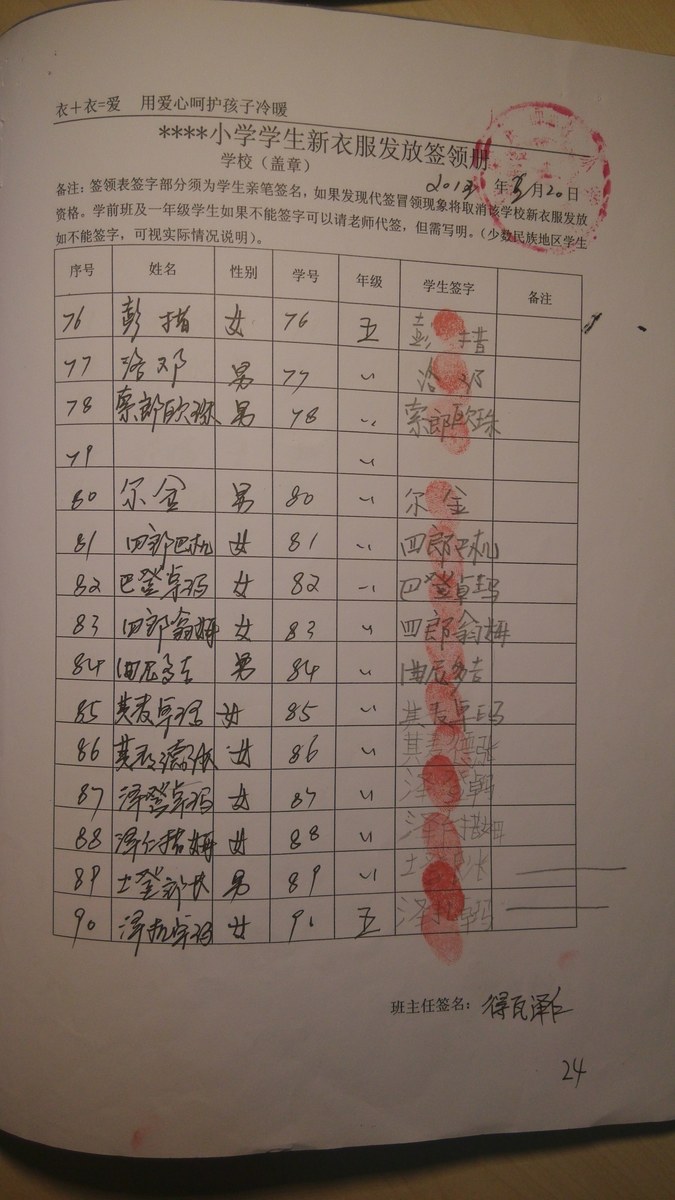 衣+衣=爱 用爱心呵护孩子冷暖
****小学学生新衣服发放签领册
学校（盖章） 2013年5月20日
备注：签领表签字部分须为学生亲笔签名，如果发现代签冒领现象将取消该学校新衣服发放
资格。学前班及一年级学生如果不能签字可以请老师代签，但需写明。（少数民族地区学生
如不能签字，可视实际情况说明）。
序号 姓名 性别 学号 年级 学生签字 备注
76 彭措 女 76 五 彭措
77 洛邓 男 77 〃 洛邓
78 索郎欧珠 男 78 〃 索郎欧珠
79 〃
80 尔金 男 80 〃 尔金
81 四郎巴机 女 81 〃 四郎巴机
82 巴登卓玛 女 82 〃 巴登卓玛
83 四郎翁姆 女 83 〃 四郎翁姆
84 曲尼多吉 男 84 〃 曲尼多吉
85 其麦卓玛 女 85 〃 其麦卓玛
86 其麦德 女 86 〃 其麦德张
87 泽登卓玛 女 87 〃 泽登卓玛
88 泽仁措姆 女 88 〃 泽仁措姆
89 土登郎长 男 89 〃 土登
90 泽扎卓玛 女 90 五 泽扎卓玛
班主任签名：得瓦泽仁
24